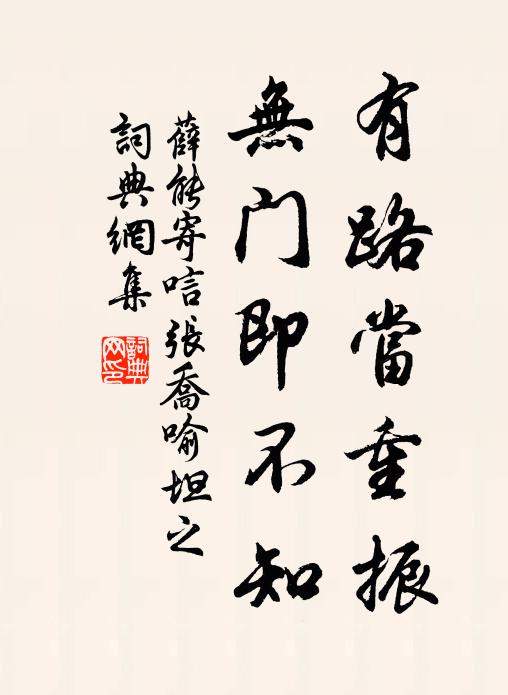 有路當重振
無门即不知
薛能寄唁張喬喻坦之
詞典網集
詞典
网印